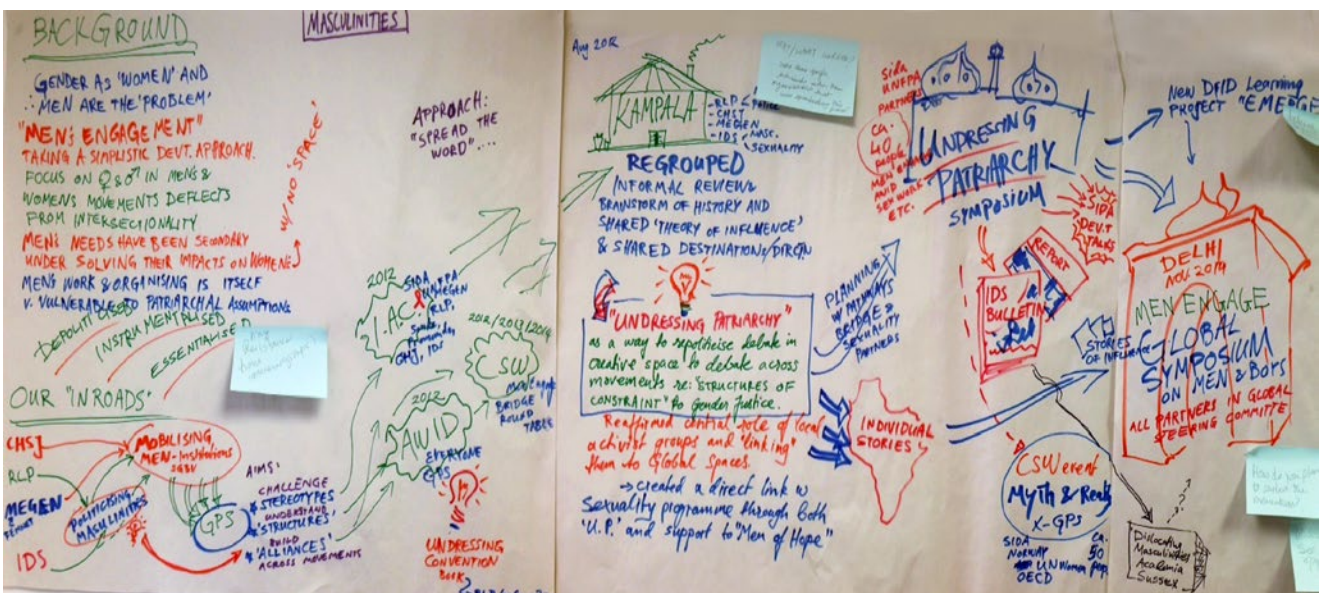 BACKGROUND
MASCULINITIES
GENDER AS 'WOMEN' AND
∴ MEN ARE THE 'PROBLEM'
"MEN'S ENGAGEMENT"
TAKING A SIMPLISTIC DEVT. APPROACH.
FOCUS ON ♀ & ♂ IN MEN'S &
WOMENS MOVEMENTS DEFLECTS
FROM INTERSECTIONALITY
MEN'S NEEDS HAVE BEEN SECONDARY
UNDER SOLVING THEIR IMPACTS ON WOMEN'S
W/ NO 'SPACE'
MEN'S WORK & ORGANISING IS ITSELF
V. VULNERABLE TO PATRIARCHAL ASSUMPTIONS
DEPOLITICISED
INSTRUMENTALISED
ESSENTIALISED
APPROACH:
"SPREAD THE
WORD"....
OUR "INROADS"
CHSJ
RLP
MEGEN
IDS
MOBILISING
MEN - Institutions
SGBV
POLITICISING
MASCULINITIES
GPS
AIMS:
CHALLENGE
* STEREOTYPES
UNDERSTAND
* 'STRUCTURES'
BUILD
* 'ALLIANCES'
ACROSS MOVEMENTS
2012
I.A.C.
SIDA
MEGEN
RLP,
CHSJ, IDS
2012
AWID
EVERYONE
GPS
2012/2013/2014
CSW
BRIDGE
ROUND
TABLE
UNDRESSING
CONVENTION
BOOK
Aug 2012
KAMPALA
- RLP &
- CHSJ
- MEGEN
- IDS MASC.
SEXUALITY
REGROUPED
INFORMAL REVIEW
BRAINSTORM OF HISTORY AND
SHARED 'THEORY OF INFLUENCE'
& SHARED DESTINATIONS/DIRQN
"UNDRESSING PATRIARCHY"
as a way to repoliticise debate in
creative space to debate across
movements re: 'STRUCTURES OF
CONSTRAINT' to Gender Justice.
Reaffirmed central role of local
activist groups and "linking"
them to Global Spaces.
→ created a direct link w
Sexuality programme through both
'U.P.' and support to "Men of Hope"
PLANNING
W/ PATHWAYS
BRIDGE &
SEXUALITY
PARTNERS
INDIVIDUAL
STORIES
Sida
UNFPA
PARTNERS
CA.
40
people
MEN'S ENGAGE
AND
SEX WORK
ETC.
UNDRESSING
PATRIARCHY
SYMPOSIUM
SIDA
DEV.T
TALKS
REPORT
IDS
BULLETIN
STORIES
OF INFLUENCE
CSW event
Myth & Reality
X-GPS
SIDA
NORWAY
UN Women
OECD
CA.
50
pop.
New DFID Learning
PROJECT "EMERGE
DELHI
NOV. 2014
MEN ENGAGE
GLOBAL
SYMPOSIUM
ON MEN & BOYS
ALL PARTNERS IN GLOBAL
STEERING COMMITTE
Dislocating
Masculinities
Academia
Sussex